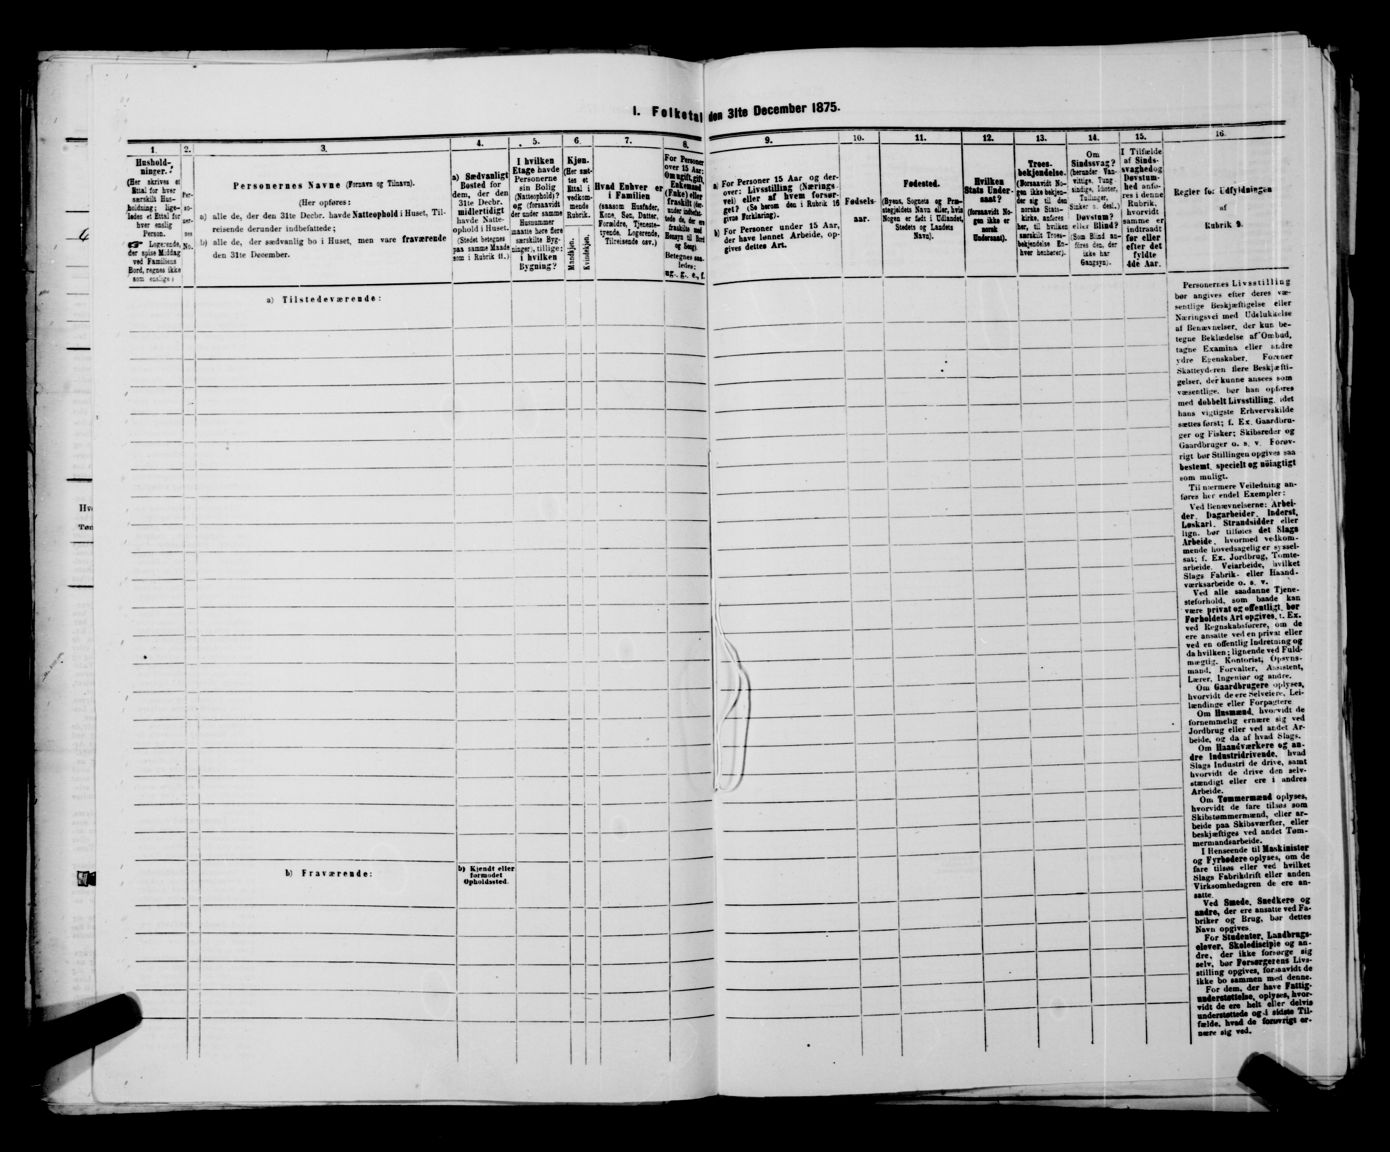 I. Folketal den 31te December 1875.
1.
Hushold-
ninger.
(Her skrives et
Ettal for hver
særskilt Hus-
holdning; lige-
ledes et Ettal for
hver enslig
Person.
☞ Logerende,
der spise Middag
ved Familiens
Bord, regnes ikke
som enslige)
2.
Per-
so-
ner-
nes
No.
3.
Personernes Navne (Fornavn og Tilnavn).
(Her opføres:
a) alle de, der den 31te Decbr. havde Natteophold i Huset, Til-
reisende derunder indbefattede;
b) alle de, der sædvanlig bo i Huset, men vare fraværende
den 31te December.
4.
a) Sædvanligt
Bosted for
dem, der den
31te Decbr.
midlertidigt
havde Natte-
ophold i Huset.
(Stedet betegnes
paa samme Maade
som i Rubrik 11.)
5.
I hvilken
Etage havde
Personerne
sin Bolig
(Natteophold)?
og (forsaavidt
der under samme
Husnummer
maatte høre flere
særskilte Byg-
ninger), tillige:
i hvilken
Bygning?
6.
Kjøn.
(Her sæt-
tes et
Ettal i
vedkom-
mende
Rubrik.
Mandkjøn.
Kvindekjøn.
7.
Hvad Enhver er
i Familien
(saasom Husfader,
Kone, Søn, Datter,
Forældre, Tjeneste-
tyende, Logerende,
Tilreisende osv.)
8.
For Personer
over 15 Aar:
Om ugift, gift,
Enkemand
(Enke) eller
fraskilt (der-
under indbefat-
tede de, der ere
fraskilte med
Hensyn til Bord
og Seng).
Betegnes saa-
ledes:
ug., g., e., f.
9.
a) For Personer 15 Aar og der-
over: Livsstilling (Nærings-
vei) eller af hvem forsør-
get? (Se herom den i Rubrik 16
givne Forklaring).
b) For Personer under 15 Aar,
der have lønnet Arbeide, op-
gives dettes Art.
10.
Fødsels-
aar.
11.
Fødested.
(Byens, Sognets og Præ-
stegjeldets Navn eller, hvis
Nogen er født i Udlandet,
Stedets og Landets
Navn).
12.
Hvilken
Stats Under-
saat?
(forsaavidt No-
gen ikke er
norsk
Undersaat).
13.
Troes-
bekjendelse.
(Forsaavidt No-
gen ikke bekjen-
der sig til den
norske Stats-
kirke, anføres
her, til hvilken
særskilt Troes-
bekjendelse En-
hver henhører).
14.
Om
Sindssvag?
(herunder Van-
vittige, Tung-
sindige, Idioter,
Tullinger,
Sinker o. desl.)
Døvstum?
eller Blind?
(Som Blind an-
føres den, der
ikke har
Gangsyn).
15.
I Tilfælde
af Sinds-
svaghed og
Døvstum-
hed anfø-
res i denne
Rubrik,
hvorvidt
samme er
indtraadt
før eller
efter det
fyldte
4de Aar.
16.
Regler for Udfyldningen
af
Rubrik 9.
a) Tilstedeværende:
b) Fraværende:
b) Kjendt eller
formodet
Opholdssted.
Personernes Livsstilling
bør angives efter deres væ-
sentlige Beskjæftigelse eller
Næringsvei med Udelukkelse
af Benævnelser, der kun be-
tegne Beklædelse af Ombud,
tagne Examina eller andre
ydre Egenskaber. Forener
Skatteyderen flere Beskjæfti-
gelser, der kunne ansees som
væsentlige, bør han opføres
med dobbelt Livsstilling, idet
hans vigtigste Erhvervskilde
sættes først; f. Ex. Gaardbru-
ger og Fisker; Skibsreder og
Gaardbruger o. s. v. Forøv-
rigt bør Stillingen opgives saa
bestemt, specielt og nøiagtigt
som muligt.
Til nærmere Veiledning an-
føres her endel Exempler:
Ved Benævnelserne: Arbei-
der, Dagarbeider, Inderst,
Løskarl, Strandsidder eller
lign. bør tilføies det Slags
Arbeide, hvormed vedkom-
mende hovedsagelig er syssel-
sat; f. Ex. Jordbrug, Tomte-
arbeide, Veiarbeide, hvilket
Slags Fabrik- eller Haand-
værksarbeide o. s. v.
Ved alle saadanne Tjene-
steforhold, som baade kan
være privat og offentligt, bør
Forholdets Art opgives, t. Ex.
ved Regnskabsførere, om de
ere ansatte ved en privat eller
ved en offentlig Indretning og
da hvilken; lignende ved Fuld-
mægtig, Kontorist, Opsyns-
mand, Forvalter, Assistent,
Lærer, Ingeniør og andre.
Om Gaardbrugere oplyses,
hvorvidt de ere Selveiere, Lei-
lændinge eller Forpagtere
Om Husmænd, hvorvidt de
fornemmelig ernære sig ved
Jordbrug eller ved andet Ar-
beide, og da af hvad Slags.
Om Haandværkere og an-
dre Industridrivende, hvad
Slags Industri de drive, samt
hvorvidt de drive den selv-
stændigt eller ere i andres
Arbeide.
Om Tømmermænd oplyses,
hvorvidt de fare tilsøs som
Skibstømmermænd, eller ar-
beide paa Skibsværfter, eller
beskjæftiges ved andet Tøm-
mermandsarbeide.
I Henseende til Maskinister
og Fyrbødere oplyses, om de
fare tilsøs eller ved hvilket
Slags Fabrikdrift eller anden
Virksomhedsgren de ere an-
satte.
Ved Smede, Snedkere og
andre, der ere ansatte ved Fa-
briker og Brug, bør dettes
Navn opgives.
For Studenter, Landbrugs-
elever, Skoledisciple og an-
dre, der ikke forsørge sig
selv, bør Forsørgerens Livs-
stilling opgives, forsaavidt de
ikke bo sammen med denne.
For dem, der have Fattig-
understøttelse, oplyses, hvor-
vidt de ere helt eller delvis
understøttede og i sidste Til-
fælde, hvad de forøvrigt er-
nære sig ved.